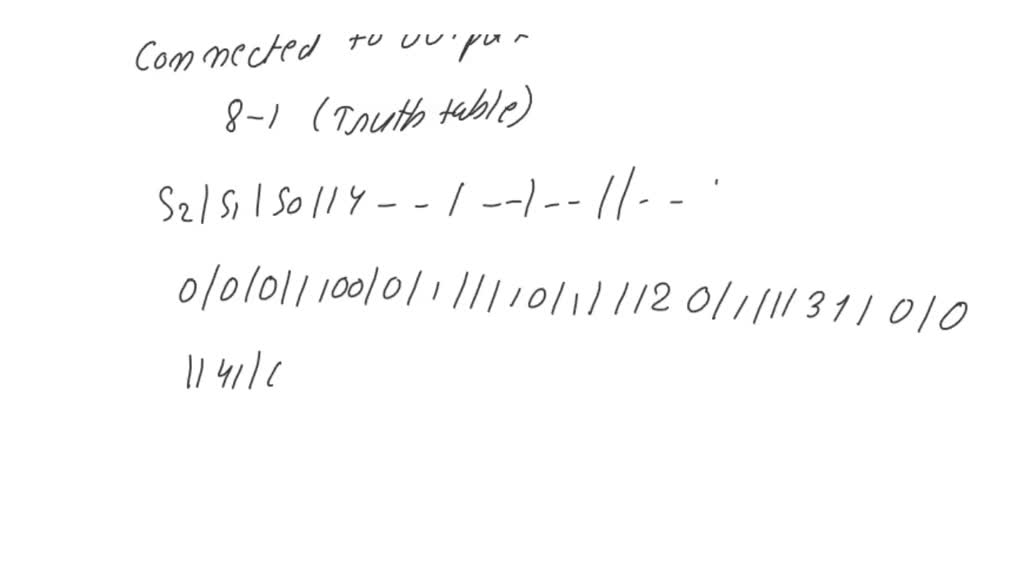 Connected to outpu
8-1 (Truth table)
S2 | S1 | S0 || Y - - | - - | - - || - -
0/0/0//100/0/1////10/1///2 0/1///31/0/0
||41/0